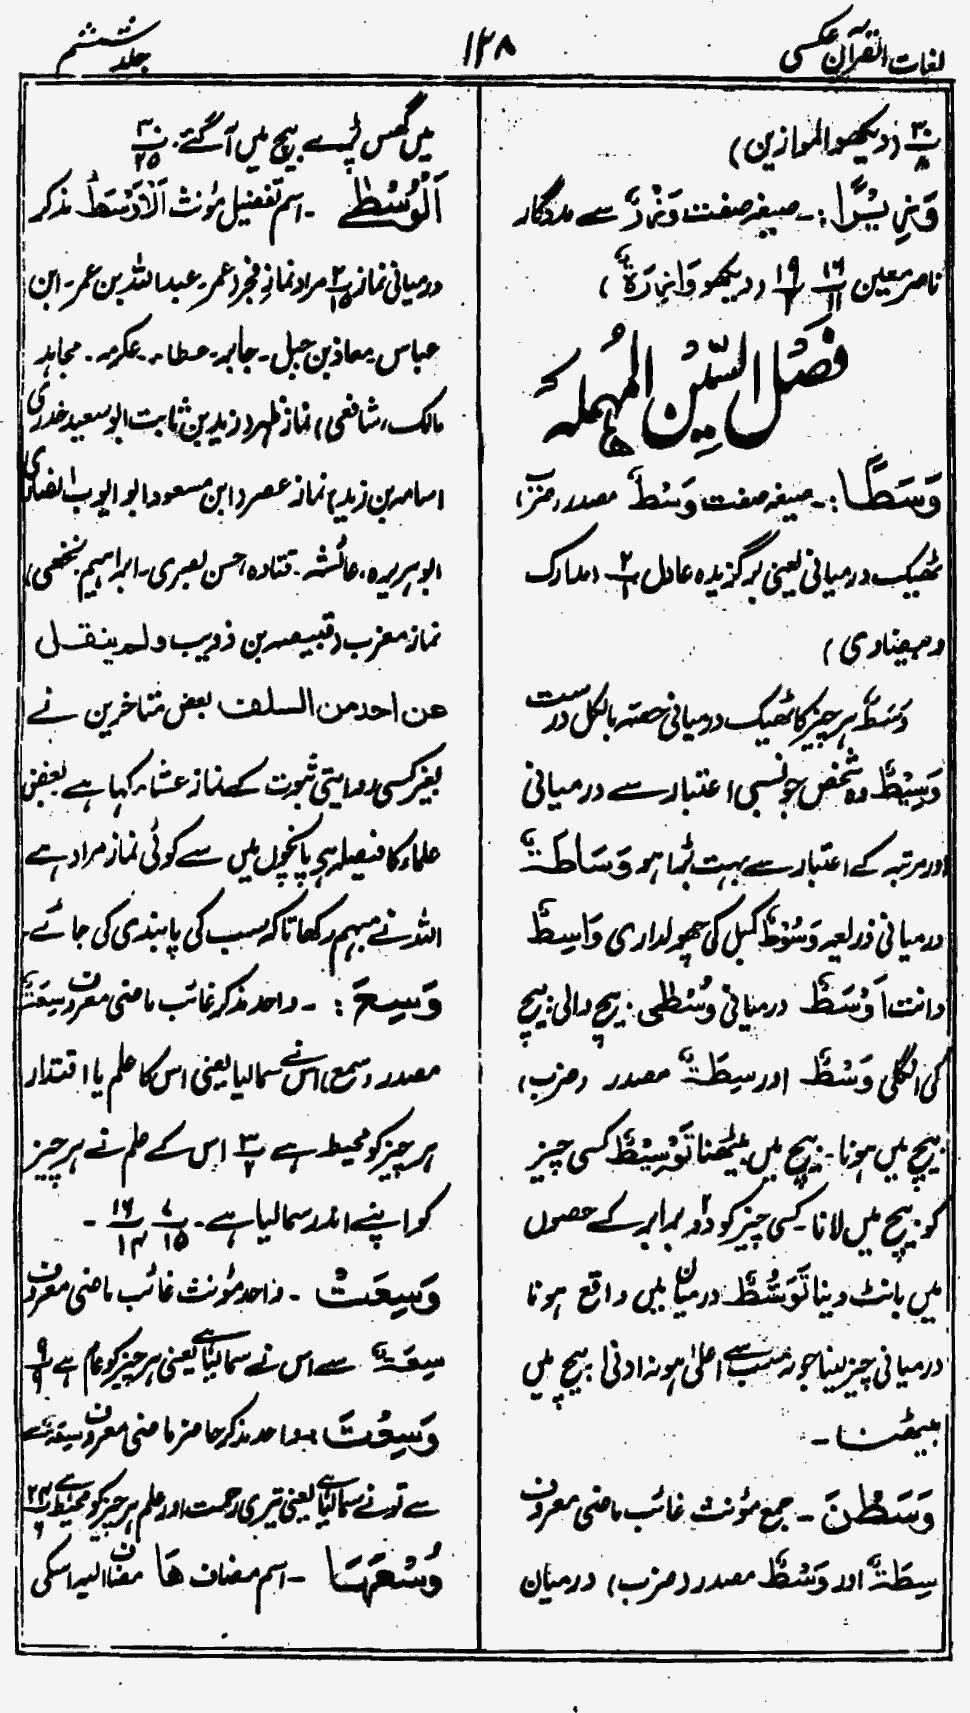 لغات القرآن عکسی
۱۲۸
جلد ششم
۳۰/۸ (دیکھو الموازین)
وَزِیْرًا :۔ صیغہ صفت وَزْرٌ سے مددگار
ناصر معین ۱۶/۱۱ ۱۹/۲ (دیکھو وَازِرَةٌ)
فَصْلُ السِّیْنِ الْمُهْمَلَه
وَسَطًا :۔ صیغہ صفت وَسْطٌ مصدر (ضرب)
ٹھیک درمیانی یعنی برگزیدہ عادل ۲/۱ (مدارک
و بیضاوی)
وَسَطٌ ہر چیز کا ٹھیک درمیانی حصّہ بالکل درست
وَسِیْطٌ وہ شخص جو نسبی اعتبار سے درمیانی
اور مرتبہ کے اعتبار سے بہت بڑا ہو وَسَاطَةٌ
درمیانی ذریعہ وَسُوْطٌ کمبل کی چھولداری وَاسِطٌ
دانت اَوْسَطُ درمیانی وُسْطٰی بیچ والی بیچ
کی انگلی وَسْطٌ اور سِطَةٌ مصدر (ضرب)
بیچ میں ہونا۔ بیچ میں بیٹھنا تَوْسِیْطٌ کسی چیز
کو بیچ میں لانا۔ کسی چیز کو دو برابر کے حصوں
میں بانٹ دینا تَوَسُّطٌ درمیان میں واقع ہونا
درمیانی چیز لینا جو نہ سب سے اعلیٰ ہو نہ ادنیٰ بیچ میں
بیٹھنا۔
وَسَطْنَ ۔ جمع مؤنث غائب ماضی معروف
سِطَةٌ اور وَسْطٌ مصدر (ضرب) درمیان
میں گھس پڑے بیچ میں آگئے۔ ۳۰/۲۵
اَلْوُسْطٰی ۔ اسم تفضیل مؤنث اَلْاَوْسَطُ مذکر
درمیانی نماز ۲/۱۵ مراد نمازِ فجر (عمر۔ عبداللہ بن عمر۔ ابن
عباس۔ معاذ بن جبل۔ جابر۔ عطاء۔ عکرمہ۔ مجاہد
مالک، شافعی) نماز ظہر (زید بن ثابت ابوسعید خدری
اسامہ بن زید) نماز عصر (ابن مسعود ابو ایوب انصاری
ابوہریرہ، عائشہ۔ قتادہ، حسن بصری۔ ابراہیم نخعی)
نماز مغرب (قبیصہ بن ذویب ولم ینقل
عن احد من السلف بعض متاخرین نے
بغیر کسی روایتی ثبوت کے نماز عشاء کہا ہے بعض
علماء کا فیصلہ ہے پانچوں میں سے کوئی نماز مراد ہے
اللہ نے مبہم رکھا تاکہ سب کی پابندی کی جائے۔
وَسِعَ :۔ واحد مذکر غائب ماضی معروف سَعَةٌ
مصدر (سمع) اس نے سما لیا یعنی اس کا علم یا اقتدار
ہر چیز کو محیط ہے ۳/۲ اس کے علم نے ہر چیز
کو اپنے اندر سما لیا ہے۔ ۷/۱۵ ۱۶/۱۴ ۔
وَسِعَتْ ۔ واحد مؤنث غائب ماضی معروف
سِعَةٌ سے اس نے سما لیا ہے یعنی ہر چیز کو عام ہے ۹/۹
وَسِعْتَ :۔ واحد مذکر حاضر ماضی معروف سِعَةٌ
سے تو نے سما لیا ہے یعنی تیری رحمت اور علم ہر چیز کو محیط ہے ۲۴/۶
وُسْعَهَا ۔ اسم مضاف هَا مضاف الیہ اسکی